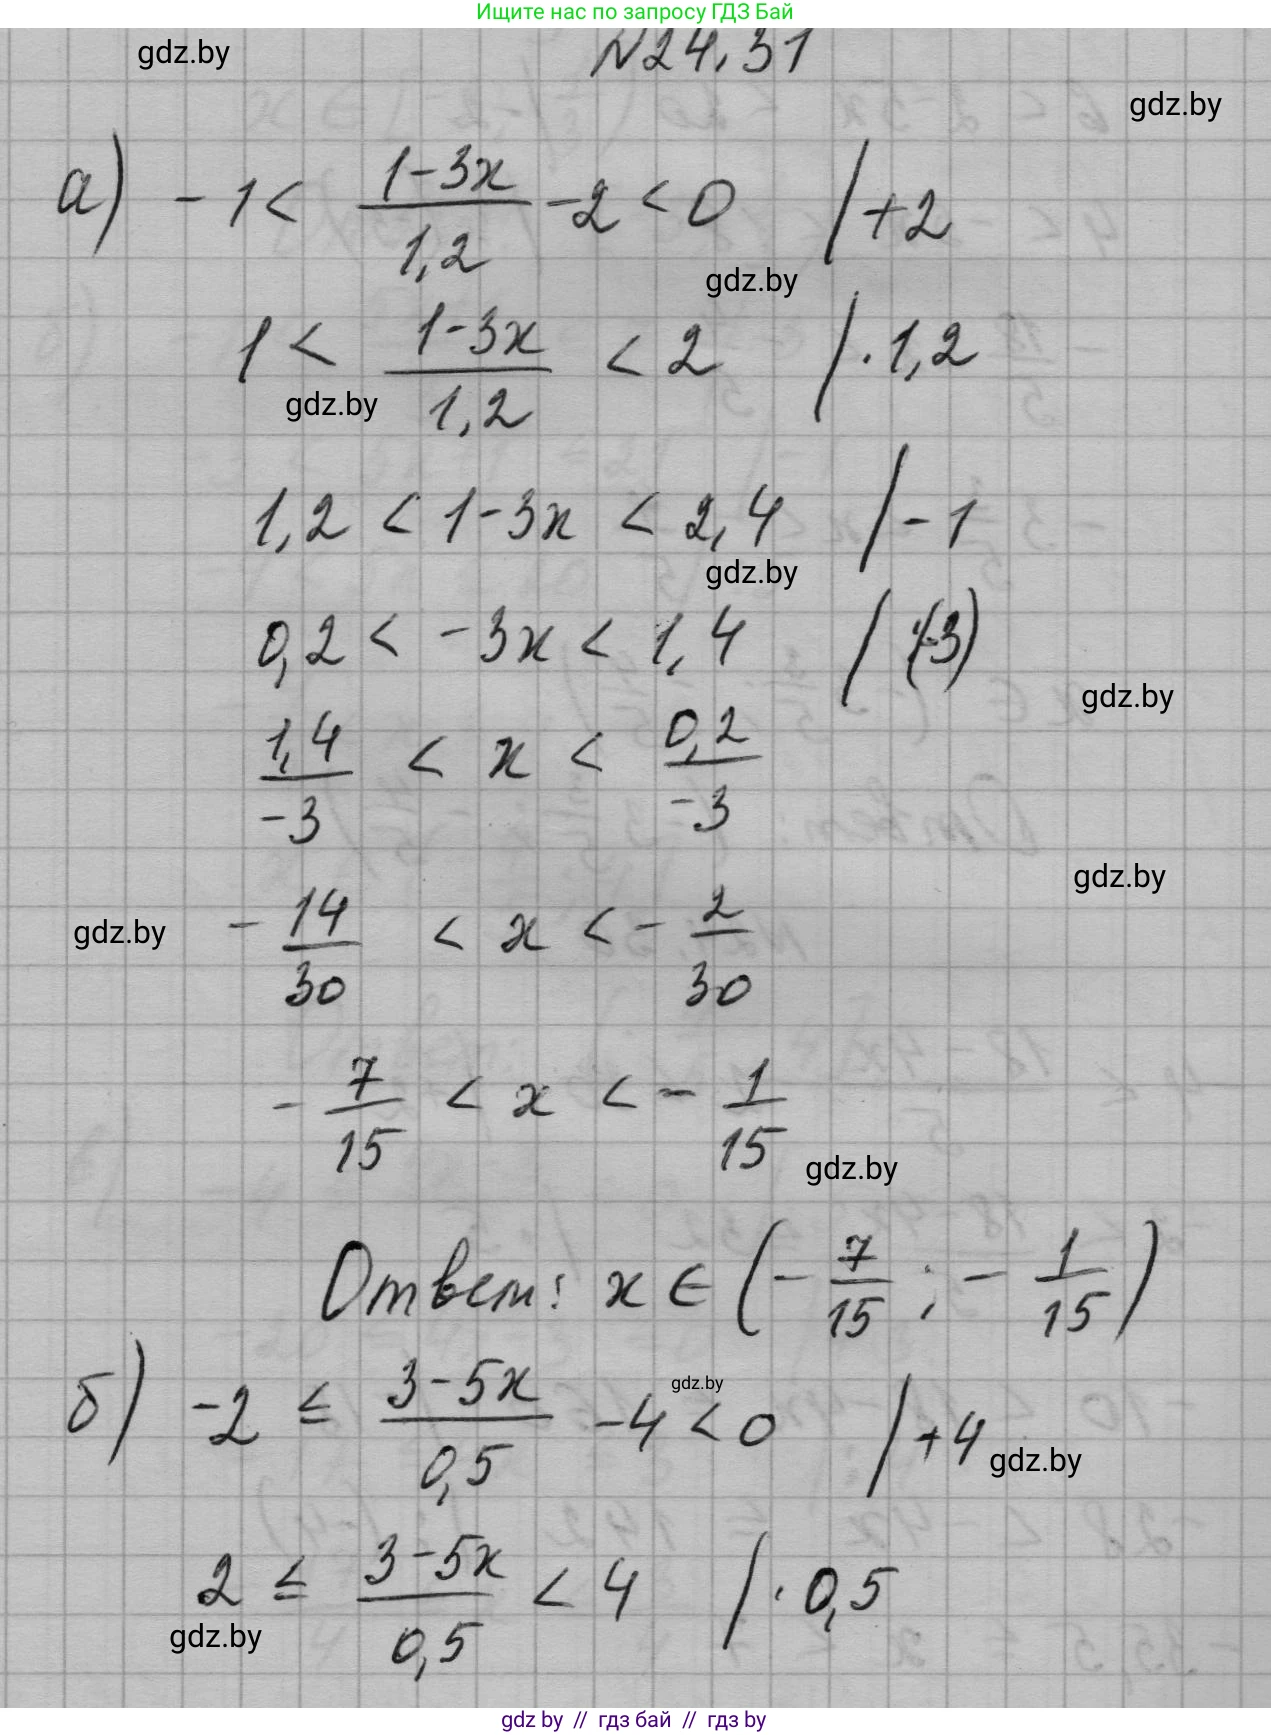 Ищите нас по запросу ГДЗ Бай
№24.31
gdz.by
gdz.by
а) -1 < (1-3x)/1,2 - 2 < 0 | +2
gdz.by
1 < (1-3x)/1,2 < 2 | · 1,2
gdz.by
1,2 < 1-3x < 2,4 | -1
gdz.by
0,2 < -3x < 1,4 | :(-3)
gdz.by
1,4/-3 < x < 0,2/-3
gdz.by
gdz.by
-14/30 < x < -2/30
-7/15 < x < -1/15
gdz.by
Ответ: x ∈ (-7/15 ; -1/15)
б) -2 ≤ (3-5x)/0,5 - 4 < 0 | +4
gdz.by
gdz.by
2 ≤ (3-5x)/0,5 < 4 | · 0,5
gdz.by
gdz by // гдз бай // гдз by